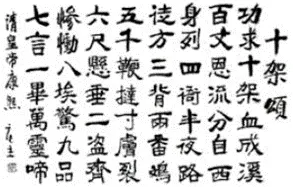 十架頌
功求十架血成溪
百丈恩流分自西
身列四衙半夜路
徒方三背兩番
五千鞭撻寸膚裂
六尺懸垂二盜齊
慘慟八埃驚九品
七言一畢萬靈啼
清皇帝康熙